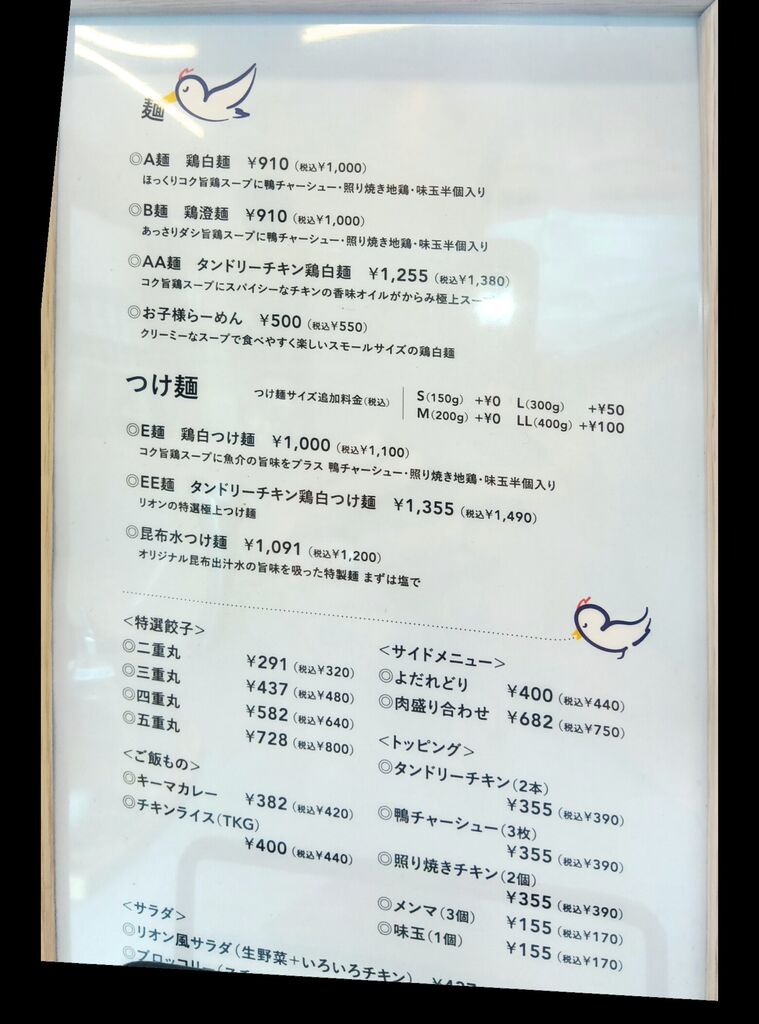 麺
◎A麺 鶏白麺 ¥910（税込¥1,000）
ほっくりコク旨鶏スープに鴨チャーシュー・照り焼き地鶏・味玉半個入り
◎B麺 鶏澄麺 ¥910（税込¥1,000）
あっさりダシ旨鶏スープに鴨チャーシュー・照り焼き地鶏・味玉半個入り
◎AA麺 タンドリーチキン鶏白麺 ¥1,255（税込¥1,380）
コク旨鶏スープにスパイシーなチキンの香味オイルがからみ極上スー
◎お子様らーめん ¥500（税込¥550）
クリーミーなスープで食べやすく楽しいスモールサイズの鶏白麺
つけ麺
つけ麺サイズ追加料金（税込）
S（150g） +¥0 L（300g） +¥50
M（200g） +¥0 LL（400g） +¥100
◎E麺 鶏白つけ麺 ¥1,000（税込¥1,100）
コク旨鶏スープに魚介の旨味をプラス 鴨チャーシュー・照り焼き地鶏・味玉半個入り
◎EE麺 タンドリーチキン鶏白つけ麺 ¥1,355（税込¥1,490）
リオンの特選極上つけ麺
◎昆布水つけ麺 ¥1,091（税込¥1,200）
オリジナル昆布出汁水の旨味を吸った特製麺 まずは塩で
＜特選餃子＞
◎二重丸 ¥291（税込¥320）
◎三重丸 ¥437（税込¥480）
◎四重丸 ¥582（税込¥640）
◎五重丸 ¥728（税込¥800）
＜ご飯もの＞
◎キーマカレー ¥382（税込¥420）
◎チキンライス（TKG）
¥400（税込¥440）
＜サラダ＞
◎リオン風サラダ（生野菜＋いろいろチキン）
◎ブロッコリー
＜サイドメニュー＞
◎よだれどり ¥400（税込¥440）
◎肉盛り合わせ ¥682（税込¥750）
＜トッピング＞
◎タンドリーチキン（2本）
¥355（税込¥390）
◎鴨チャーシュー（3枚）
¥355（税込¥390）
◎照り焼きチキン（2個）
¥355（税込¥390）
◎メンマ（3個） ¥155（税込¥170）
◎味玉（1個） ¥155（税込¥170）